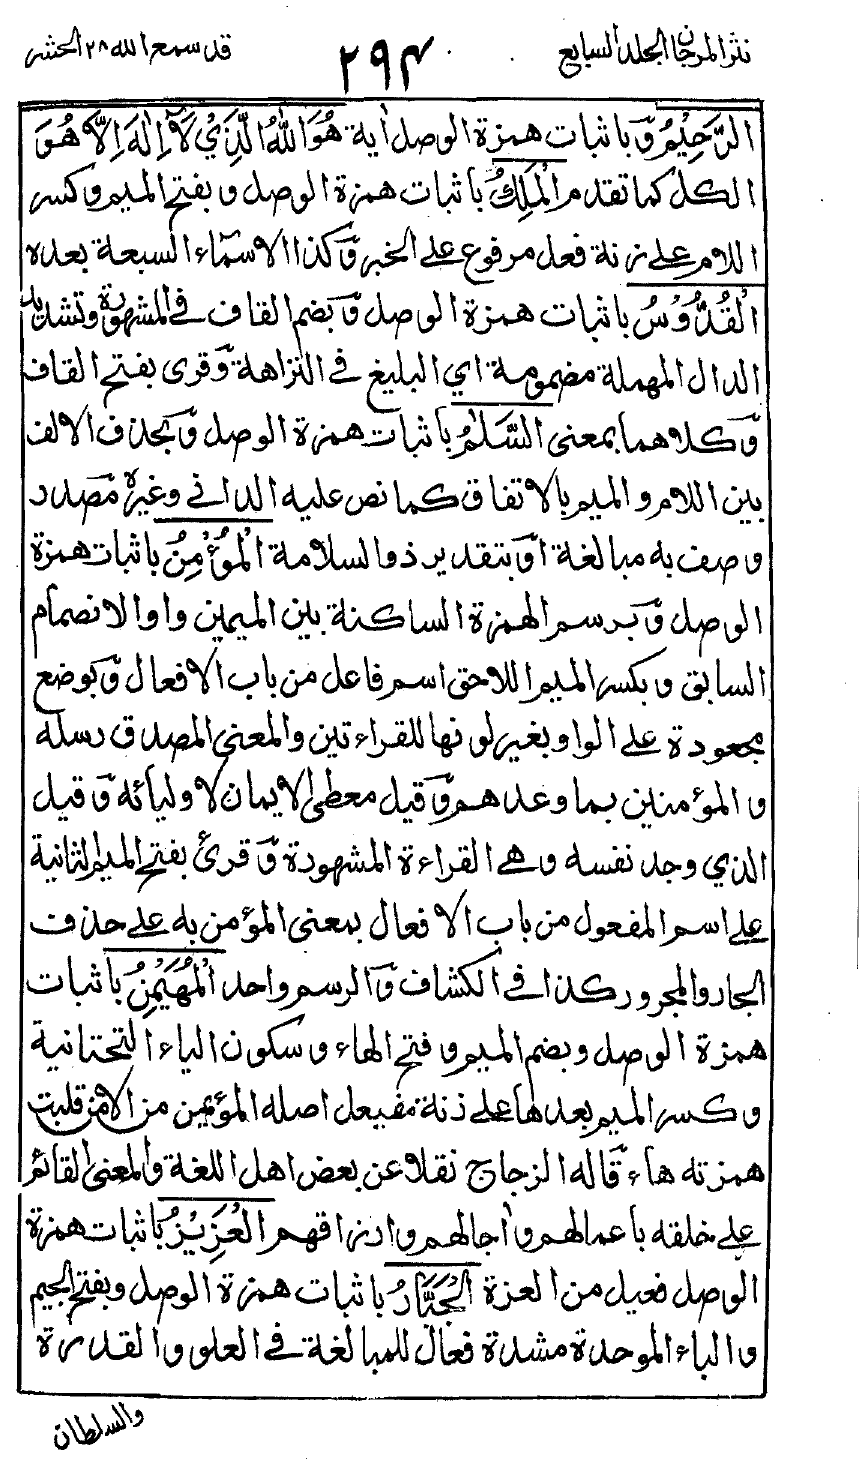 نثر المرجان الجلد السابع
٢٩٤
قد سمع الله ٢٨ الحشر
الرَّحِيْمُ وَباثبات همزة الوصل اٰية هُوَ اللهُ الَّذِيْ لَآ اِلٰهَ اِلَّا هُوَ
الكل كما تقدم اَلْمَلِكُ باثبات همزة الوصل وبفتح الميم وكسر
اللام على زنة فعل مرفوع على الخبر وَكذا الاسمآء السبعة بعده
اَلْقُدُّوْسُ باثبات همزة الوصل وَبضم القاف في المشهورة وتشديد
الدال المهملة مضمومة اي البليغ في النزاهة وَقرى بفتح القاف
وَكلاهما بمعنى السَّلٰمُ باثبات همزة الوصل وَبحذف الالف
بين اللام والميم بالاتفاق كما نص عليه الداني وغيره مَصدر
وصف به مبالغة اوَبتقدير ذوالسلامة الْمُؤْمِنُ باثبات همزة
الوصل وَبرسم الهمزة الساكنة بين الميمين واوا لانضمام
السابق وبكسر الميم اللاحق اسم فاعل من باب الافعال وَبوضع
مجعودة على الواو بغير لونها للقراءتين والمعنى المصدق رسله
والمؤمنين بما وعدهم وَقيل معطى الايمان لاوليائه وَقيل
الذي وحد نفسه وهي القراءة المشهودة وَقرئ بفتح الميم الثانية
على اسم المفعول من باب الافعال بمعنى المؤمن به على حذف
الجار والمجرور كذا في الكشاف وَالرسم واحد الْمُهَيْمِنُ باثبات
همزة الوصل وبضم الميم وفتح الهاء وسكون الياء التحتانية
وكسر الميم بعدها على زنة مفيعل اصله المؤيمن من الامن قلبت
همزته هاء قَاله الزجاج نقلا عن بعض اهل اللغة والمعنى القائم
على خلقه باعمالهم واٰجالهم وارزاقهم الْعَزِيْزُ باثبات همزة
الوصل فعيل من العزة الْجَبَّارُ باثبات همزة الوصل وبفتح الجيم
والباء الموحدة مشددة فعال للمبالغة في العلو والقدرة
والسلطان